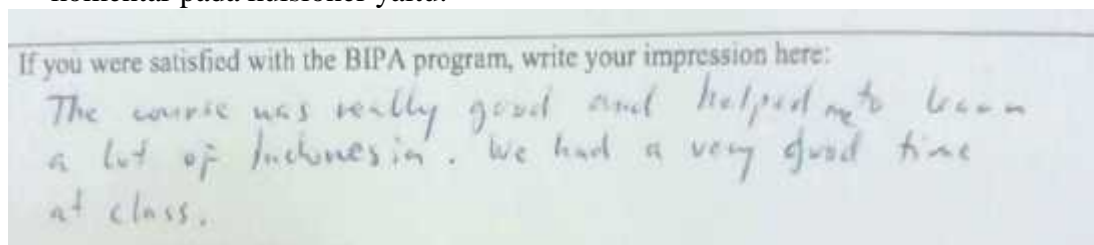 komentar pada kuisioner yaitu:
If you were satisfied with the BIPA program, write your impression here:
The course was really good and helped me to learn
a lot of Indonesia. We had a very good time
at class.